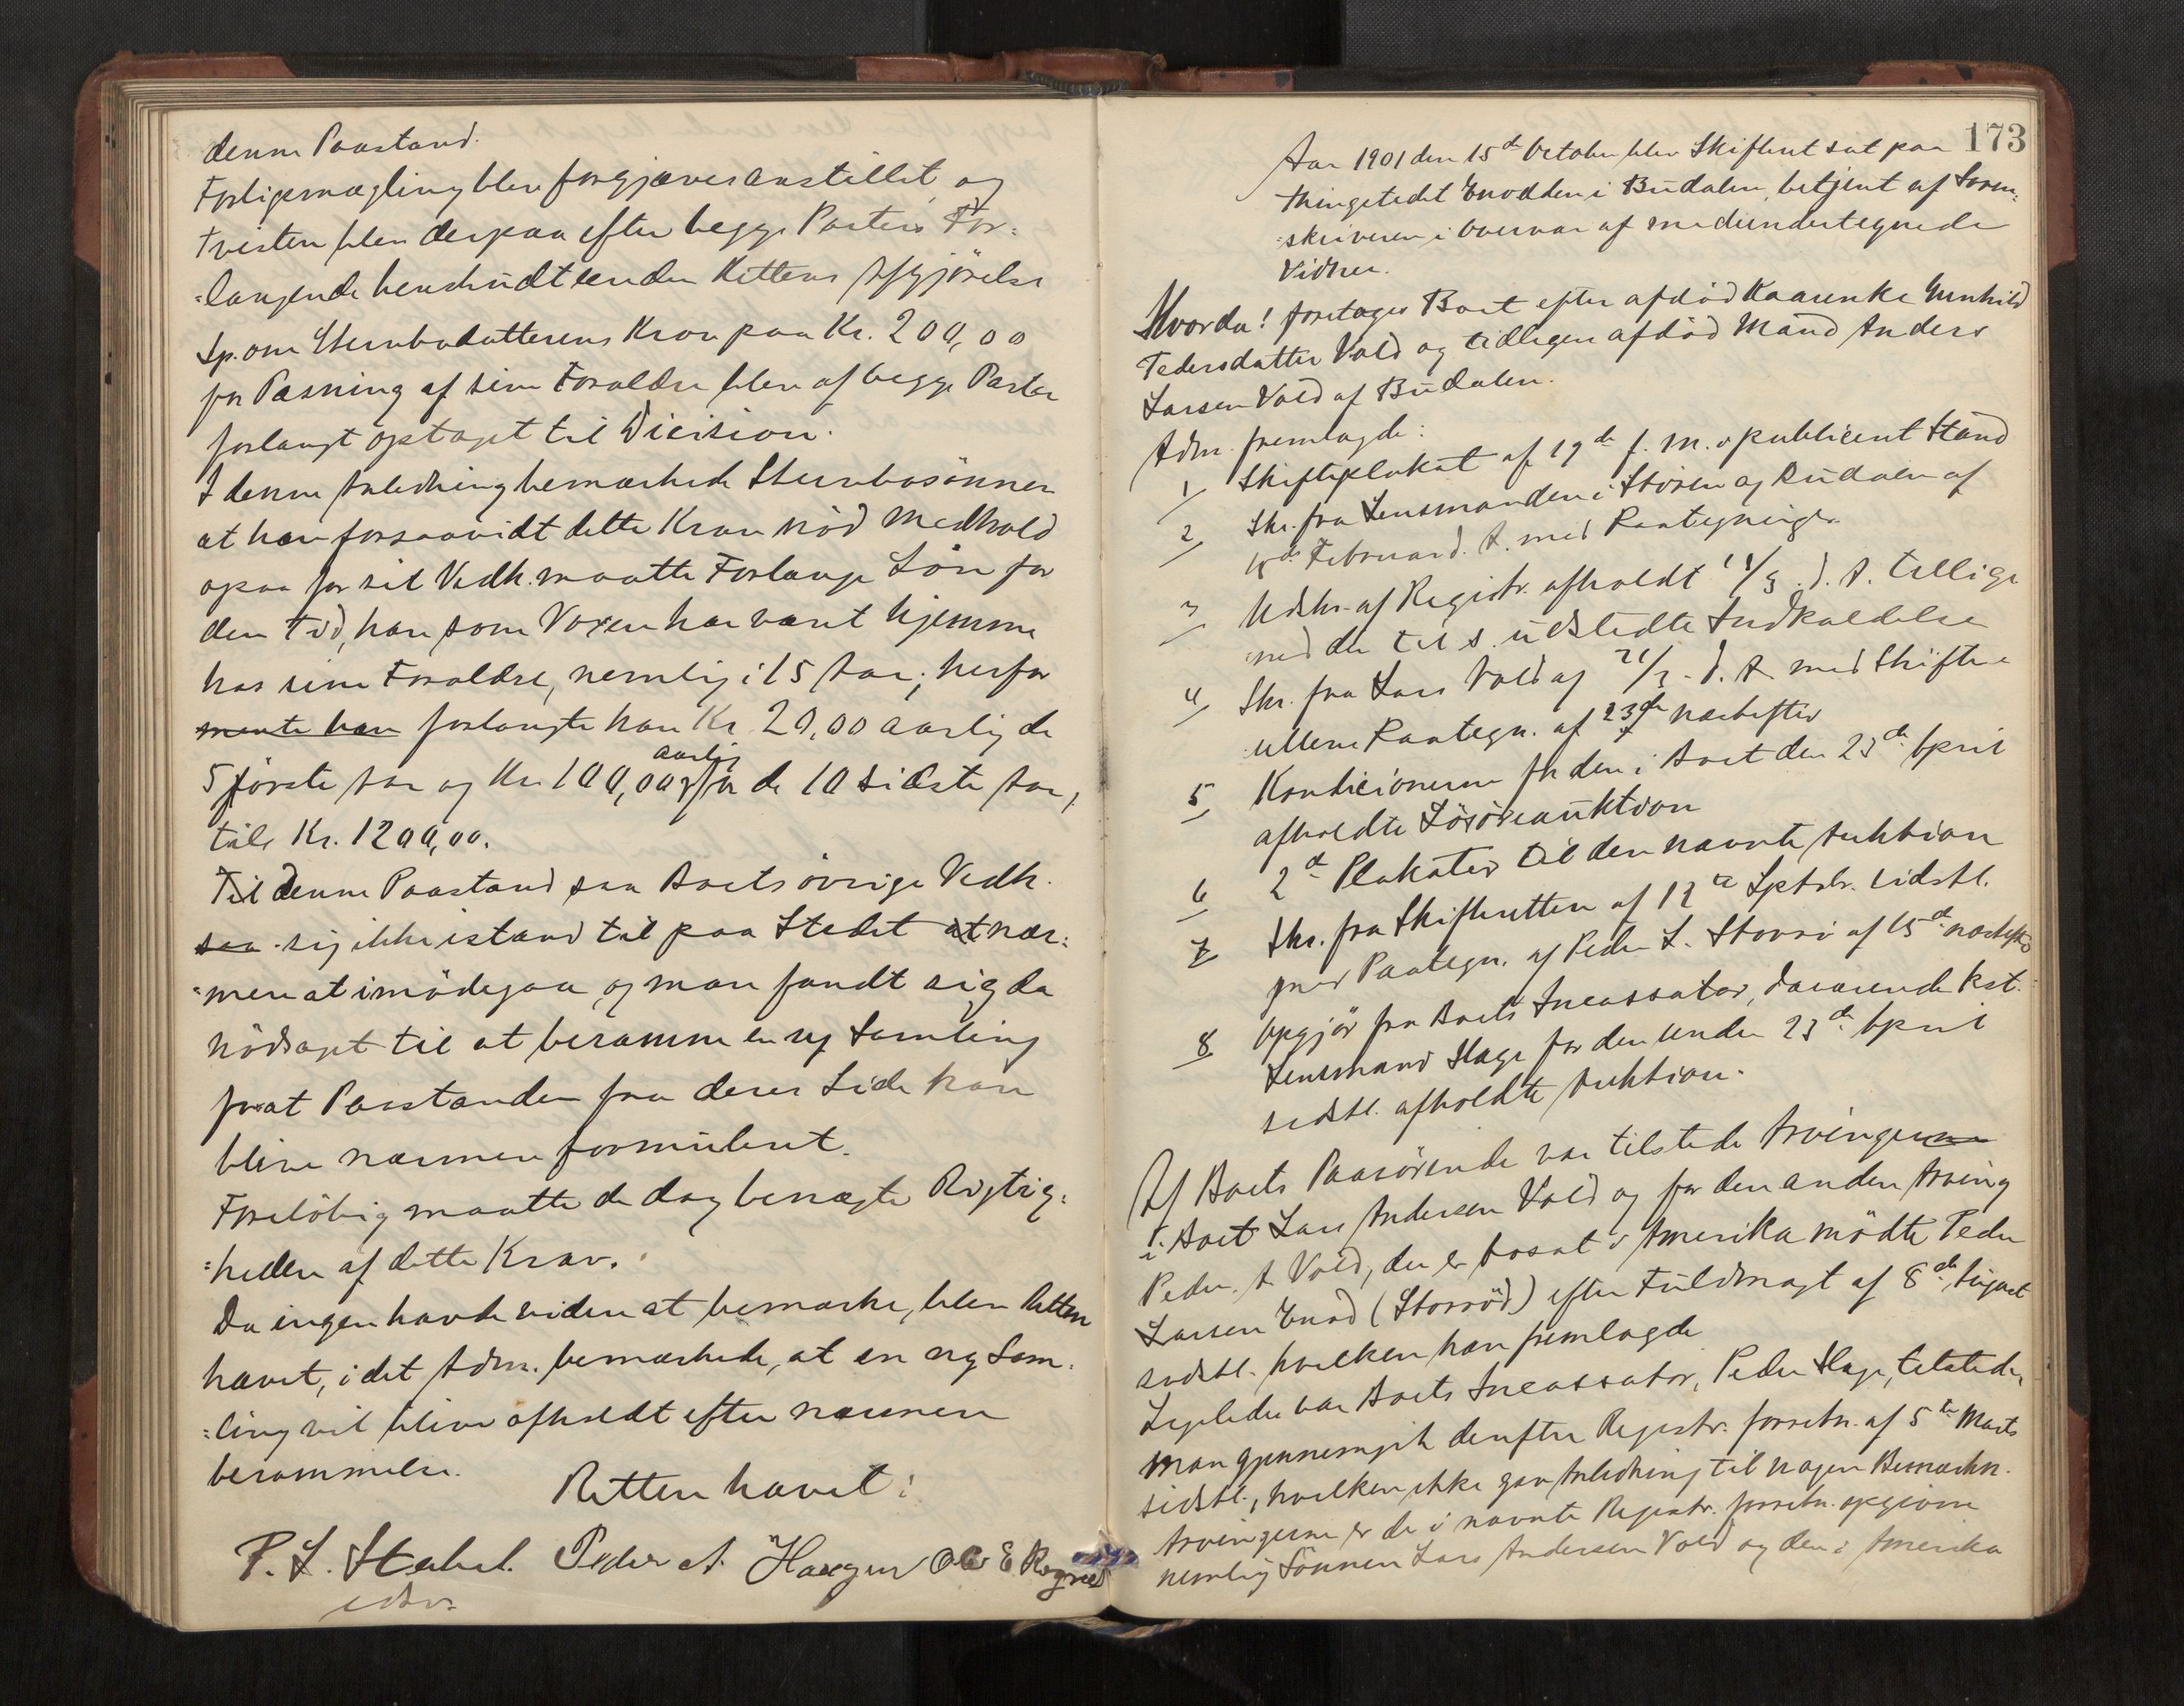 denne Paastand.
Forligsmægling blev forgjæves anstillet og
tvisten blev derpaa efter begge Parters For=
=langende henskudt under Rettens Afgjörelse
Sp. om Stervbodatterens Krav paa Kr. 200,00
for Pasning af sine Forældre blev af begge Parter
forlangt optaget til Dicision.
I denne Anledning bemærkede Stervbosönnen
at han forsaavidt dette Krav nöd Medhold
ogsaa for sit Vedk. maatte Forlange Lön for
den Tid, han som Voxen har været hjemme
hos sine Forældre, nemlig i 15 Aar; herfor
mente han forlangte han Kr 20,00 aarlig de
5 förste Aar og Kr. 100,00 aarlig for de 10 sidste Aar,
tils Kr. 1200,00.
Til denne Paastand saa Boets övrige Vedk.
saa sig ikke istand til paa Stedet at nær=
=mere at imödegaa og man fandt sig da
nödsaget til at beramme en ny Samling
for at Paastanden fra deres Side kan
blive nærmere formuleret.
Foreløbig maatte de dog benægte Rigtig=
=heden af dette Krav.
Da ingen havde videre at bemærke, blev Retten
hævet, idet Adm. bemærkede, at en ny Sam=
=ling vil blive afholdt efter nærmere
berammelse.
Retten hævet:
P. L. Stabel. Peder A. Haugen Ole E Rognes
edsv.
173
Aar 1901 den 15de October blev Skifteret sat paa
Thingstedet Enodden i Budalen, betjent af Soren=
=skriveren i Overvær af medundertegnede
Vidner.
Hvorda! foretages Boet efter afdöd Kaarenke Gunhild
Pedersdatter Vold og tidligere afdöd Mand Anders
Larsen Vold af Budalen.
Adm. fremlagde:
1 Skifteplakat af 19de f. M. publiceret Stand
2 Skr. fra Lensmanden i Stören og Budalen af
Februar d. A. med Paategninger
3 Udskr. af Registr. afholdt /3 d. A. tillige
med de til s. udstedte Indkaldelse
4 Skr. fra Lars Vold af 21/3 d. A. med Skifte
Paategn. af 23de næstefter
5 Konditionerne for den i Boet den 23de April
afholdte Lösöreauktion
6 2de Plakater til den nævnte Auktion
7 Skr. fra Skifteretten af 12te Sptbr. sidstl.
med Paategn. af Peder L. Storrö af 15de næstefter
8 Opgjör fra Boets Incassator, daværende kst.
Lensmand Hage for den under 23de April
sidstl. afholdte Auktion.
Af Boets Paarörende var tilstede Arvingerne
i Boet Lars Andersen Vold og for den anden Arving
Peder A Vold, der er bosat i Amerika mödte Peder
Larsen Enod (Storröd) efter Fuldmagt af 8de August
sidstl. hvilken han fremlagde
Ligeledes var Boets Incassator, Peder Hage, tilstede,
Man gjennemgik derefter Registr. forretn. af 5te Marts
sidstl., hvilken ikke gav Anledning til nogen Bemærkn.
Arvingerne er de i nævnte Registr. forretn. opgivne
nemlig Sönnen Lars Andersen Vold og den i Amerika